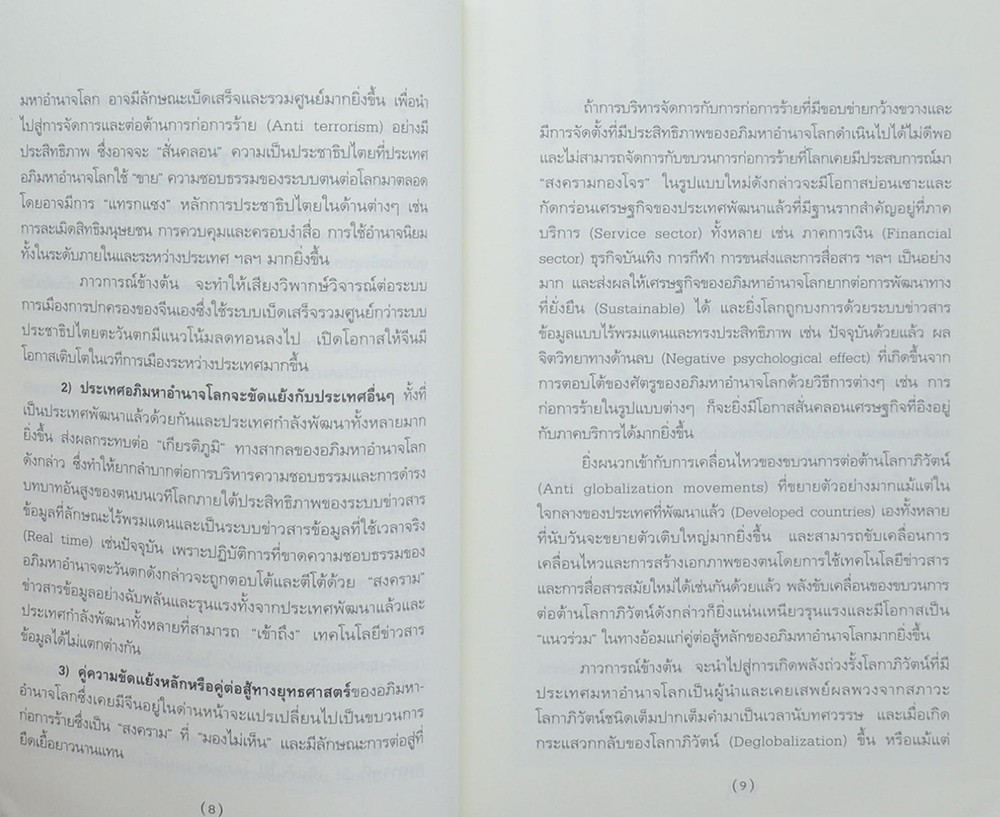 มหาอำนาจโลก อาจมีลักษณะเบ็ดเสร็จและรวมศูนย์มากยิ่งขึ้น เพื่อนำ
ไปสู่การจัดการและต่อต้านการก่อการร้าย (Anti terrorism) อย่างมี
ประสิทธิภาพ ซึ่งอาจจะ "สั่นคลอน" ความเป็นประชาธิปไตยที่ประเทศ
อภิมหาอำนาจโลกใช้ "ขาย" ความชอบธรรมของระบบตนต่อโลกมาตลอด
โดยอาจมีการ "แทรกแซง" หลักการประชาธิปไตยในด้านต่างๆ เช่น
การละเมิดสิทธิมนุษยชน การควบคุมและครอบงำสื่อ การใช้อำนาจนิยม
ทั้งในระดับภายในและระหว่างประเทศ ฯลฯ มากยิ่งขึ้น
ภาวการณ์ข้างต้น จะทำให้เสียงวิพากษ์วิจารณ์ต่อระบบ
การเมืองการปกครองของจีนเองซึ่งใช้ระบบเบ็ดเสร็จรวมศูนย์กว่าระบบ
ประชาธิปไตยตะวันตกมีแนวโน้มลดทอนลงไป เปิดโอกาสให้จีนมี
โอกาสเติบโตในเวทีการเมืองระหว่างประเทศมากขึ้น
2) ประเทศอภิมหาอำนาจโลกจะขัดแย้งกับประเทศอื่นๆ ทั้งที่
เป็นประเทศพัฒนาแล้วด้วยกันและประเทศกำลังพัฒนาทั้งหลายมาก
ยิ่งขึ้น ส่งผลกระทบต่อ "เกียรติภูมิ" ทางสากลของอภิมหาอำนาจโลก
ดังกล่าว ซึ่งทำให้ยากลำบากต่อการบริหารความชอบธรรมและการดำรง
บทบาทอันสูงของตนบนเวทีโลกภายใต้ประสิทธิภาพของระบบข่าวสาร
ข้อมูลที่ลักษณะไร้พรมแดนและเป็นระบบข่าวสารข้อมูลที่ใช้เวลาจริง
(Real time) เช่นปัจจุบัน เพราะปฏิบัติการที่ขาดความชอบธรรมของ
อภิมหาอำนาจตะวันตกดังกล่าวจะถูกตอบโต้และตีโต้ด้วย "สงคราม"
ข่าวสารข้อมูลอย่างฉับพลันและรุนแรงทั้งจากประเทศพัฒนาแล้วและ
ประเทศกำลังพัฒนาทั้งหลายที่สามารถ "เข้าถึง" เทคโนโลยีข่าวสาร
ข้อมูลได้ไม่แตกต่างกัน
3) คู่ความขัดแย้งหลักหรือคู่ต่อสู้ทางยุทธศาสตร์ของอภิมหา-
อำนาจโลกซึ่งเคยมีจีนอยู่ในด่านหน้าจะแปรเปลี่ยนไปเป็นขบวนการ
ก่อการร้ายซึ่งเป็น "สงคราม" ที่ "มองไม่เห็น" และมีลักษณะการต่อสู้ที่
ยืดเยื้อยาวนานแทน
(8)
ถ้าการบริหารจัดการกับการก่อการร้ายที่มีขอบข่ายกว้างขวางและ
มีการจัดตั้งที่มีประสิทธิภาพของอภิมหาอำนาจโลกดำเนินไปได้ไม่ดีพอ
และไม่สามารถจัดการกับขบวนการก่อการร้ายที่โลกเคยมีประสบการณ์มา
"สงครามกองโจร" ในรูปแบบใหม่ดังกล่าวจะมีโอกาสบ่อนเซาะและ
กัดกร่อนเศรษฐกิจของประเทศพัฒนาแล้วที่มีฐานรากสำคัญอยู่ที่ภาค
บริการ (Service sector) ทั้งหลาย เช่น ภาคการเงิน (Financial
sector) ธุรกิจบันเทิง การกีฬา การขนส่งและการสื่อสาร ฯลฯ เป็นอย่าง
มาก และส่งผลให้เศรษฐกิจของอภิมหาอำนาจโลกยากต่อการพัฒนาทาง
ที่ยั่งยืน (Sustainable) ได้ และยิ่งโลกถูกบงการด้วยระบบข่าวสาร
ข้อมูลแบบไร้พรมแดนและทรงประสิทธิภาพ เช่น ปัจจุบันด้วยแล้ว ผล
จิตวิทยาทางด้านลบ (Negative psychological effect) ที่เกิดขึ้นจาก
การตอบโต้ของศัตรูของอภิมหาอำนาจโลกด้วยวิธีการต่างๆ เช่น การ
ก่อการร้ายในรูปแบบต่างๆ ก็จะยิ่งมีโอกาสสั่นคลอนเศรษฐกิจที่อิงอยู่
กับภาคบริการได้มากยิ่งขึ้น
ยิ่งผนวกเข้ากับการเคลื่อนไหวของขบวนการต่อต้านโลกาภิวัตน์
(Anti globalization movements) ที่ขยายตัวอย่างมากแม้แต่ใน
ใจกลางของประเทศที่พัฒนาแล้ว (Developed countries) เองทั้งหลาย
ที่นับวันจะขยายตัวเติบใหญ่มากยิ่งขึ้น และสามารถขับเคลื่อนการ
เคลื่อนไหวและการสร้างเอกภาพของตนโดยการใช้เทคโนโลยีข่าวสาร
และการสื่อสารสมัยใหม่ได้เช่นกันด้วยแล้ว พลังขับเคลื่อนของขบวนการ
ต่อต้านโลกาภิวัตน์ดังกล่าวก็ยิ่งแน่นเหนียวรุนแรงและมีโอกาสเป็น
"แนวร่วม" ในทางอ้อมแก่คู่ต่อสู้หลักของอภิมหาอำนาจโลกมากยิ่งขึ้น
ภาวการณ์ข้างต้น จะนำไปสู่การเกิดพลังถ่วงรั้งโลกาภิวัตน์ที่มี
ประเทศมหาอำนาจโลกเป็นผู้นำและเคยเสพย์ผลพวงจากสภาวะ
โลกาภิวัตน์ชนิดเต็มปากเต็มคำมาเป็นเวลานับทศวรรษ และเมื่อเกิด
กระแสวกกลับของโลกาภิวัตน์ (Deglobalization) ขึ้น หรือแม้แต่
(9)